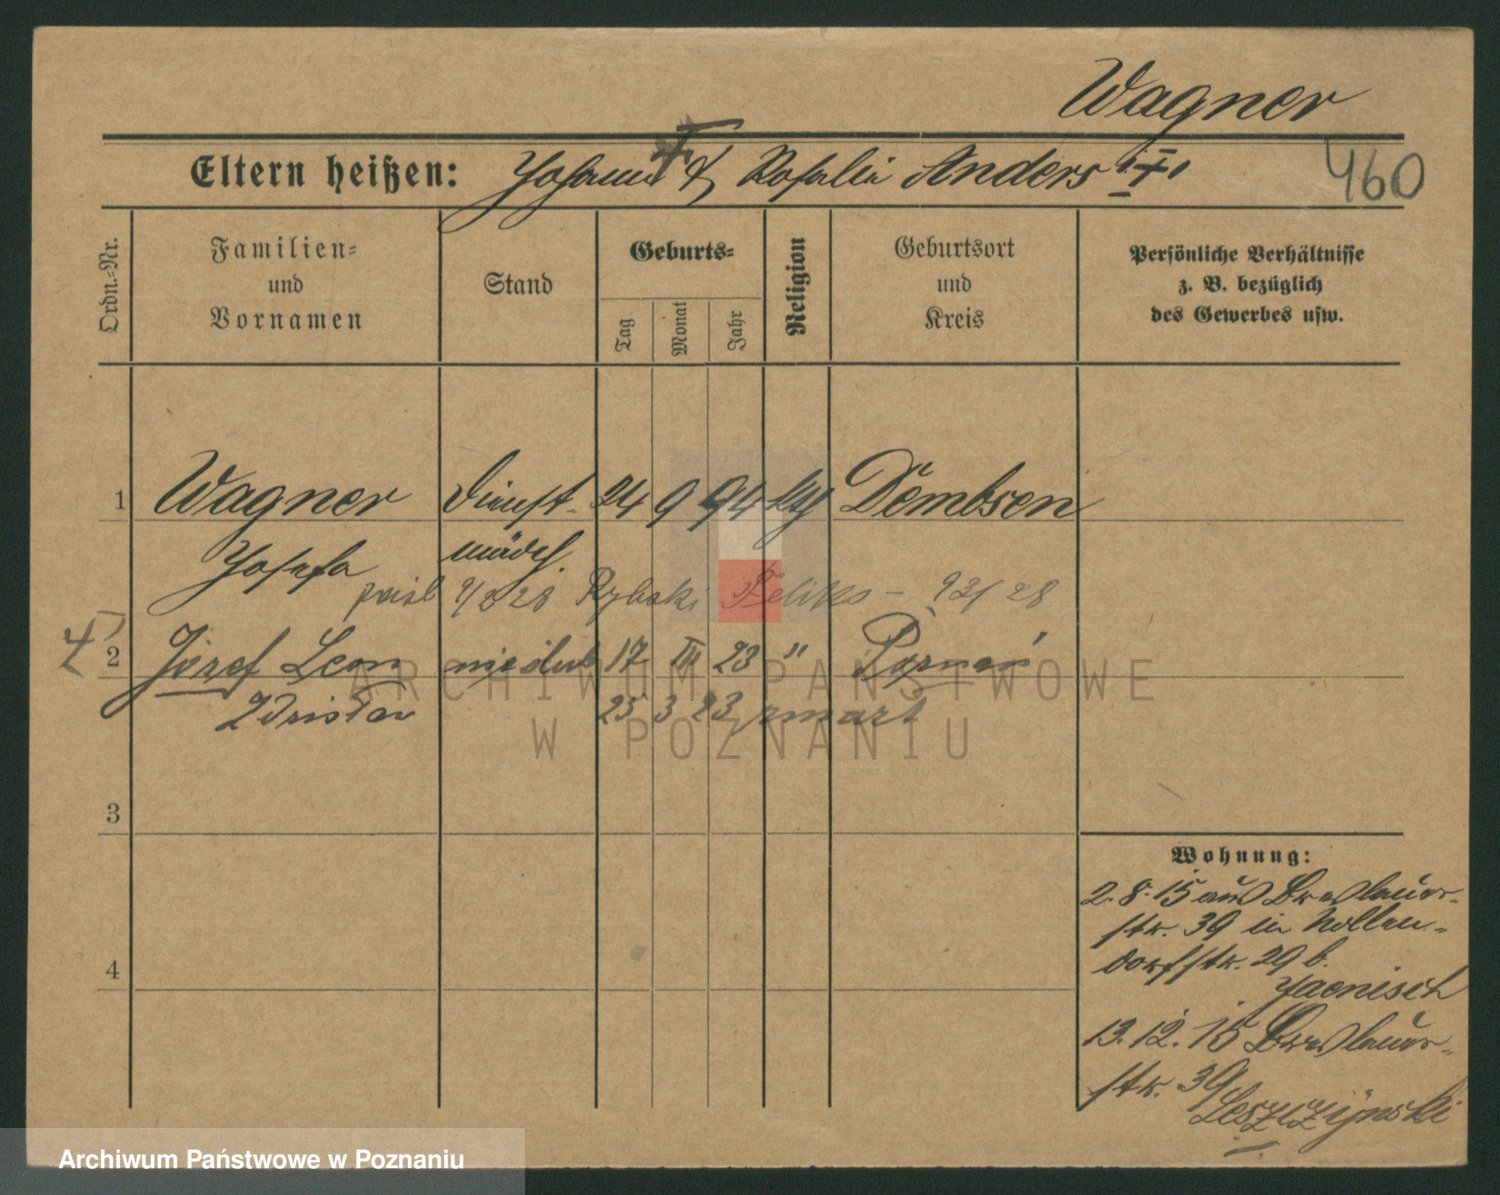 Wagner
Eltern heißen: Johann & Rosalia Anders
460
Ordn.-Nr.
Familien-
und
Vornamen
Stand
Geburts-
Tag
Monat
Jahr
Religion
Geburtsort
und
Kreis
Persönliche Verhältnisse
z. B. bezüglich
des Gewerbes usw.
1 Wagner Dienst- 24 9 94 Dembsen
Josefa mädch.
28 Rybski Feliks - 93/28
2 Józef Leon 17 III 23 " Poznań
Zdzisław 25 3 23 zmarł
3
4
Wohnung:
2. 8. 15 aus Breslauer-
str. 39 in Nollen-
dorfstr. 29 b.
Jaenisch
13. 12. 15 Breslauer-
str. 39
Leszczynski
ARCHIWUM PAŃSTWOWE
W POZNANIU
Archiwum Państwowe w Poznaniu